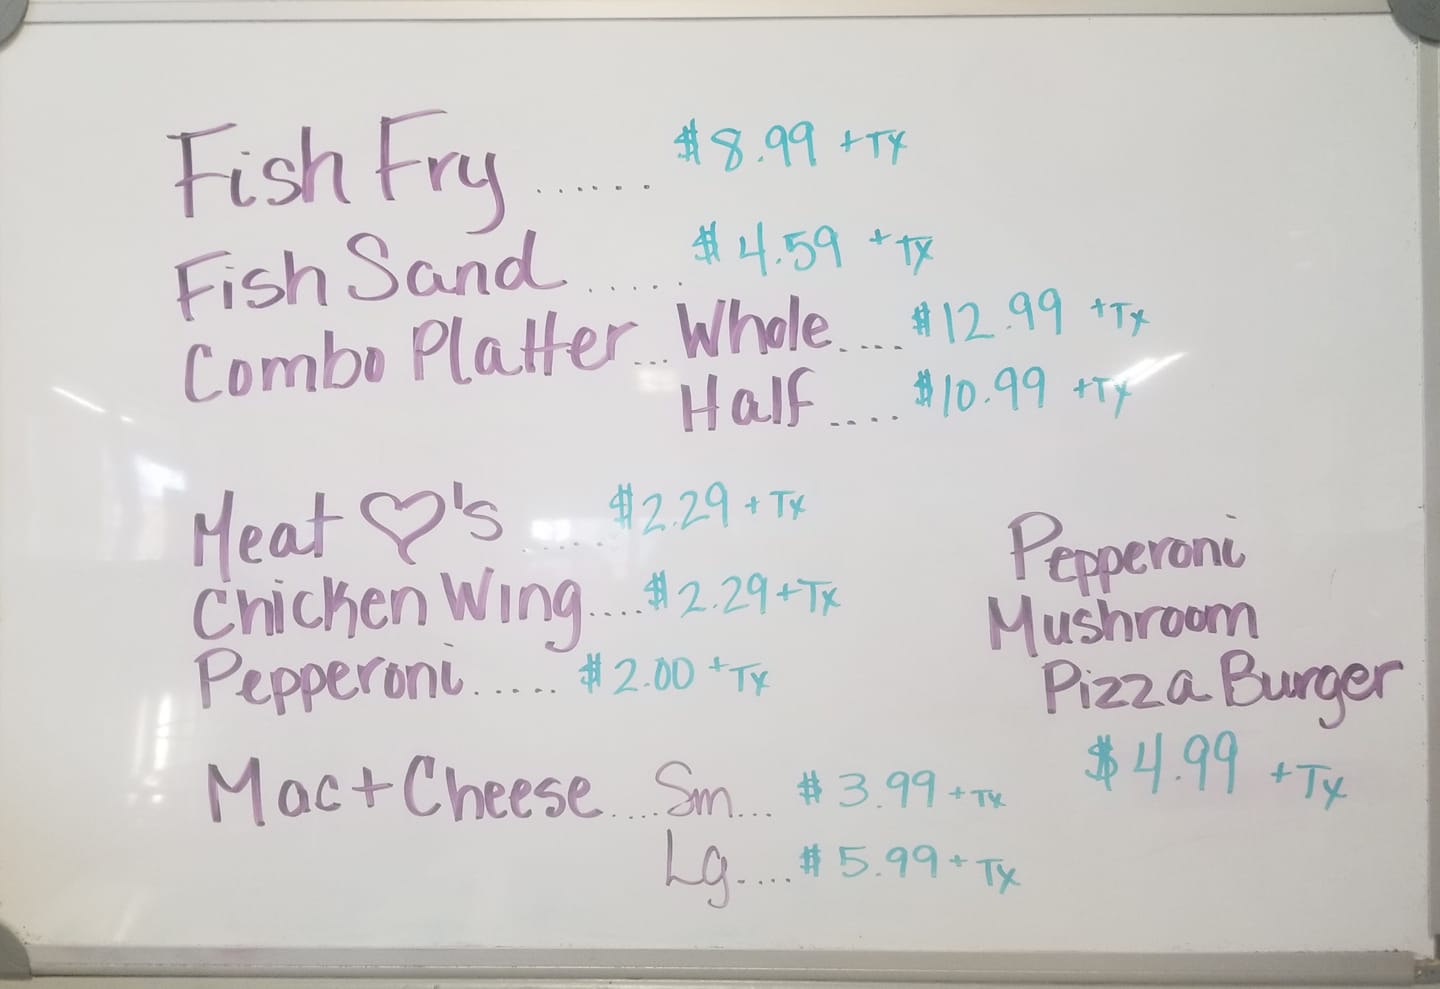 Fish Fry ...... $8.99 + Tx
Fish Sand ...... $4.59 + Tx
Combo Platter ... Whole .... $12.99 + Tx
Half .... $10.99 + Tx
Meat ♡'s ...... $2.29 + Tx
Chicken Wing .... $2.29 + Tx
Pepperoni ..... $2.00 + Tx
Mac + Cheese .... Sm ... $3.99 + Tx
Lg .... $5.99 + Tx
Pepperoni
Mushroom
Pizza Burger
$4.99 + Tx